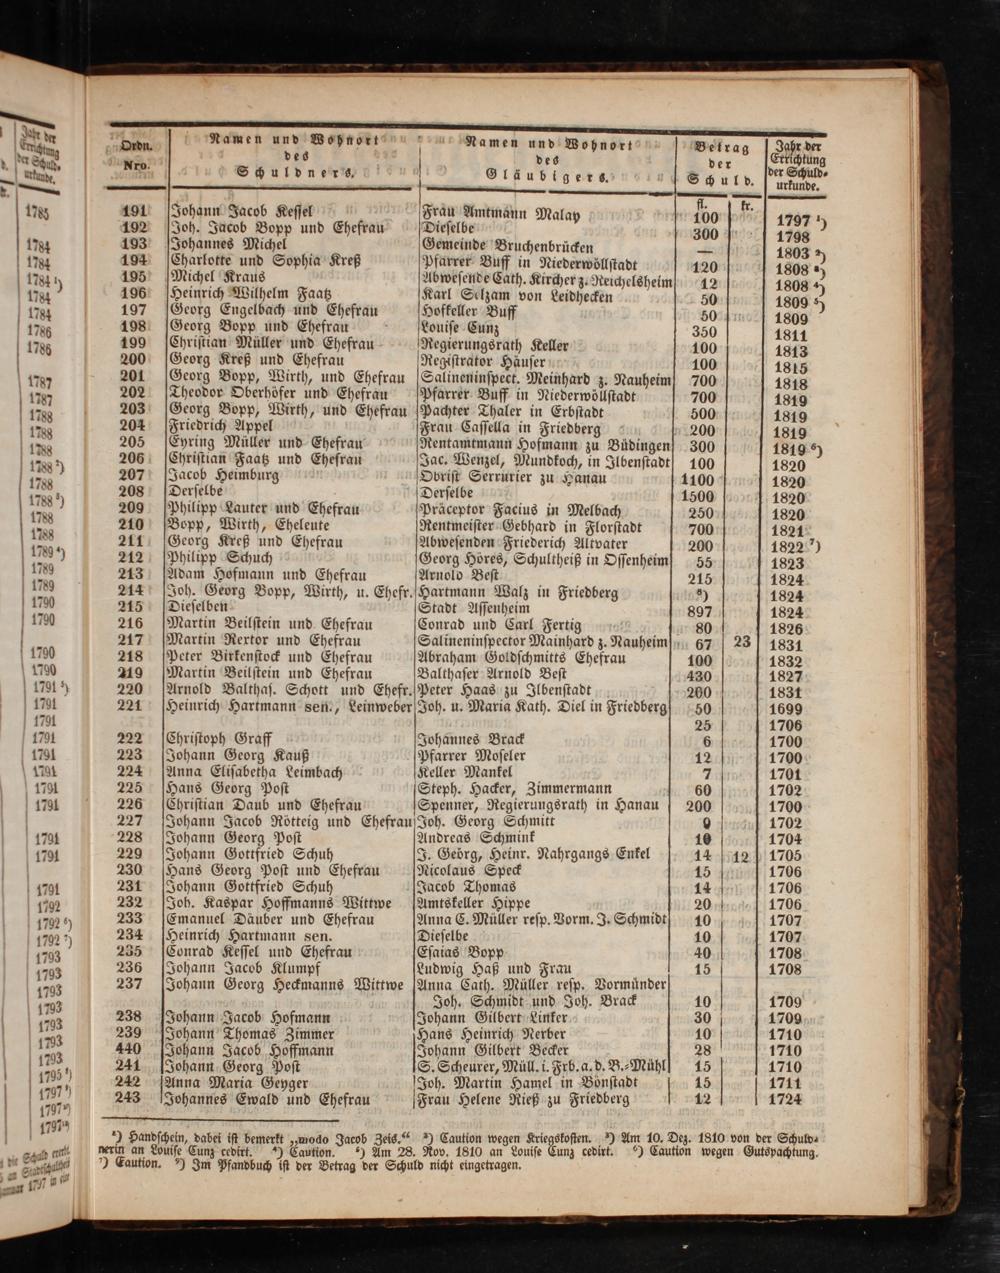 Jahr der
Errichtung
der Schuld-
urkunde.
1785
1784
1784
1784 ¹)
1784
1784
1786
1786
1787
1787
1788
1788
1788
1788 ²)
1788
1788 ³)
1788
1788
1789 ⁴)
1789
1789
1790
1790
1790
1790
1791 ⁵)
1791
1791
1791
1791
1791
1791
1791
1791
1791
1791
1792
1792 ⁶)
1792 ⁷)
1793
1793
1793
1793
1793
1793
1793
1795 ⁸)
1797 ⁹)
1797
1797
Ordn. Nro. | Namen und Wohnort des Schuldners. | Namen und Wohnort des Gläubigers. | Betrag der Schuld. | Jahr der Errichtung der Schuld-urkunde.
fl. kr.
191 Johann Jacob Kessel Frau Amtmann Malap 100 1797 ¹)
192 Joh. Jacob Bopp und Ehefrau Dieselbe 300 1798
193 Johannes Michel Gemeinde Bruchenbrücken — 1803 ²)
194 Charlotte und Sophia Kreß Pfarrer Buff in Niederwöllstadt 120 1808 ³)
195 Michel Kraus Abwesende Cath. Kircher z. Reichelsheim 12 1808 ⁴)
196 Heinrich Wilhelm Faatz Karl Selzam von Leidhecken 50 1809 ⁵)
197 Georg Engelbach und Ehefrau Hofkeller Buff 50 1809
198 Georg Bopp und Ehefrau Louise Cunz 350 1811
199 Christian Müller und Ehefrau Regierungsrath Keller 100 1813
200 Georg Kreß und Ehefrau Registrator Häuser 100 1815
201 Georg Bopp, Wirth, und Ehefrau Salineninspect. Meinhard z. Nauheim 700 1818
202 Theodor Oberhöfer und Ehefrau Pfarrer Buff in Niederwöllstadt 700 1819
203 Georg Bopp, Wirth, und Ehefrau Pachter Thaler in Erbstadt 500 1819
204 Friedrich Appel Frau Cassella in Friedberg 200 1819
205 Eyring Müller und Ehefrau Rentamtmann Hofmann zu Büdingen 300 1819 ⁶)
206 Christian Faatz und Ehefrau Jac. Wenzel, Mundkoch, in Ilbenstadt 100 1820
207 Jacob Heimburg Obrist Serrurier zu Hanau 1100 1820
208 Derselbe Derselbe 1500 1820
209 Philipp Lauter und Ehefrau Präceptor Facius in Melbach 250 1820
210 Bopp, Wirth, Eheleute Rentmeister Gebhard in Florstadt 700 1821
211 Georg Kreß und Ehefrau Abwesenden Friederich Altvater 200 1822 ⁷)
212 Philipp Schuch Georg Höres, Schultheiß in Ossenheim 55 1823
213 Adam Hofmann und Ehefrau Arnold Best 215 1824
214 Joh. Georg Bopp, Wirth, u. Ehefr. Hartmann Walz in Friedberg ⁸) 1824
215 Dieselben Stadt Assenheim 897 1824
216 Martin Beilstein und Ehefrau Conrad und Carl Fertig 80 1826
217 Martin Rertor und Ehefrau Salineninspector Mainhard z. Nauheim 67 23 1831
218 Peter Birkenstock und Ehefrau Abraham Goldschmitts Ehefrau 100 1832
219 Martin Beilstein und Ehefrau Balthaser Arnold Best 430 1827
220 Arnold Balthas. Schott und Ehefr. Peter Haas zu Ilbenstadt 200 1831
221 Heinrich Hartmann sen., Leinweber Joh. u. Maria Kath. Diel in Friedberg 50 1699
25 1706
222 Christoph Graff Johannes Brack 6 1700
223 Johann Georg Kauß Pfarrer Moseler 12 1700
224 Anna Elisabetha Leimbach Keller Mankel 7 1701
225 Hans Georg Post Steph. Hacker, Zimmermann 60 1702
226 Christian Daub und Ehefrau Spenner, Regierungsrath in Hanau 200 1700
227 Johann Jacob Rötteig und Ehefrau Joh. Georg Schmitt 9 1702
228 Johann Georg Post Andreas Schmink 10 1704
229 Johann Gottfried Schuh J. Georg, Heinr. Nahrgangs Enkel 14 12 1705
230 Hans Georg Post und Ehefrau Nicolaus Speck 15 1706
231 Johann Gottfried Schuh Jacob Thomas 14 1706
232 Joh. Kaspar Hoffmanns Wittwe Amtskeller Hippe 20 1706
233 Emanuel Däuber und Ehefrau Anna E. Müller resp. Vorm. J. Schmidt 10 1707
234 Heinrich Hartmann sen. Dieselbe 10 1707
235 Conrad Kessel und Ehefrau Esaias Bopp 40 1708
236 Johann Jacob Klumpf Ludwig Haß und Frau 15 1708
237 Johann Georg Heckmanns Wittwe Anna Cath. Müller resp. Vormünder
Joh. Schmidt und Joh. Brack 10 1709
238 Johann Jacob Hofmann Johann Gilbert Linker 30 1709
239 Johann Thomas Zimmer Hans Heinrich Nerber 10 1710
440 Johann Jacob Hoffmann Johann Gilbert Becker 28 1710
241 Johann Georg Post S. Scheurer, Müll. i. Frb. a. d. B.-Mühl 15 1710
242 Anna Maria Geyger Joh. Martin Hamel in Bönstadt 15 1711
243 Johannes Ewald und Ehefrau Frau Helene Rieß zu Friedberg 12 1724
¹) Handschein, dabei ist bemerkt „modo Jacob Zeis.“ ²) Caution wegen Kriegskosten. ³) Am 10. Dez. 1810 von der Schuld-
nerin an Louise Cunz cedirt. ⁴) Caution. ⁵) Am 28. Nov. 1810 an Louise Cunz cedirt. ⁶) Caution wegen Gutspachtung.
⁷) Caution. ⁸) Im Pfandbuch ist der Betrag der Schuld nicht eingetragen.